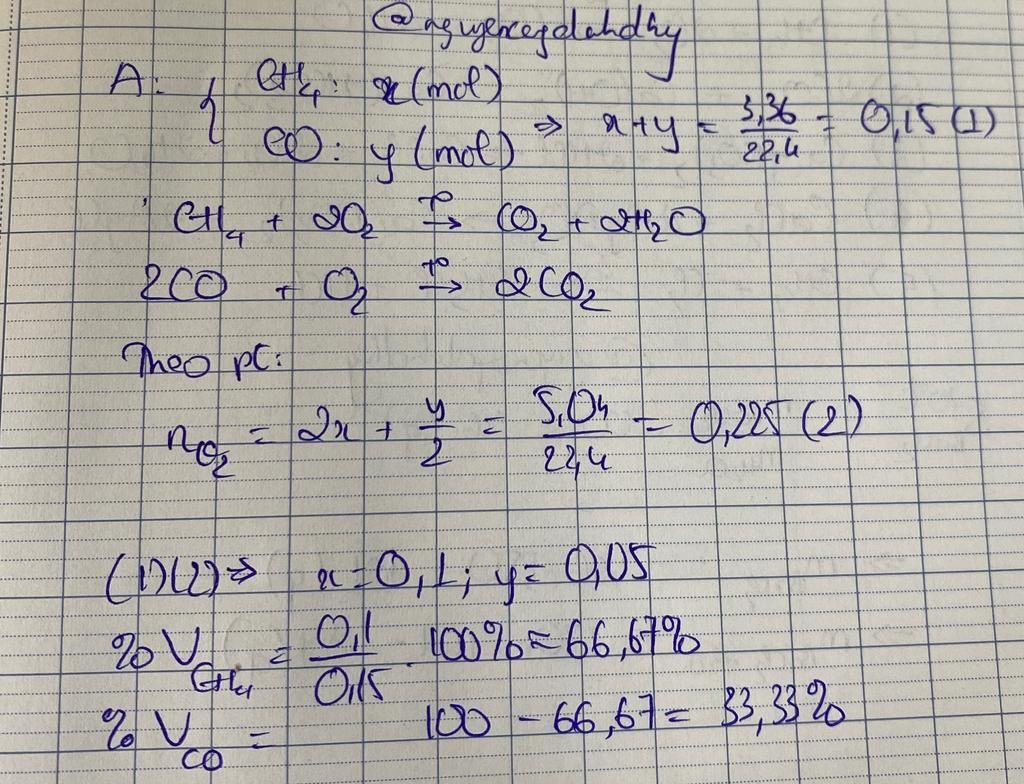 @nguyencegdahdhy
A: { CH₄: x (mol)
CO: y (mol) ⇒ x+y = 3,36/22,4 = 0,15 (1)
CH₄ + 2O₂ t°→ CO₂ + 2H₂O
2CO + O₂ t°→ 2CO₂
Theo pt:
nO₂ = 2x + y/2 = 5,04/22,4 = 0,225 (2)
(1)(2) ⇒ x = 0,1; y = 0,05
%V CH₄ = 0,1/0,15 . 100% = 66,67%
%V CO = 100 - 66,67 = 33,33%